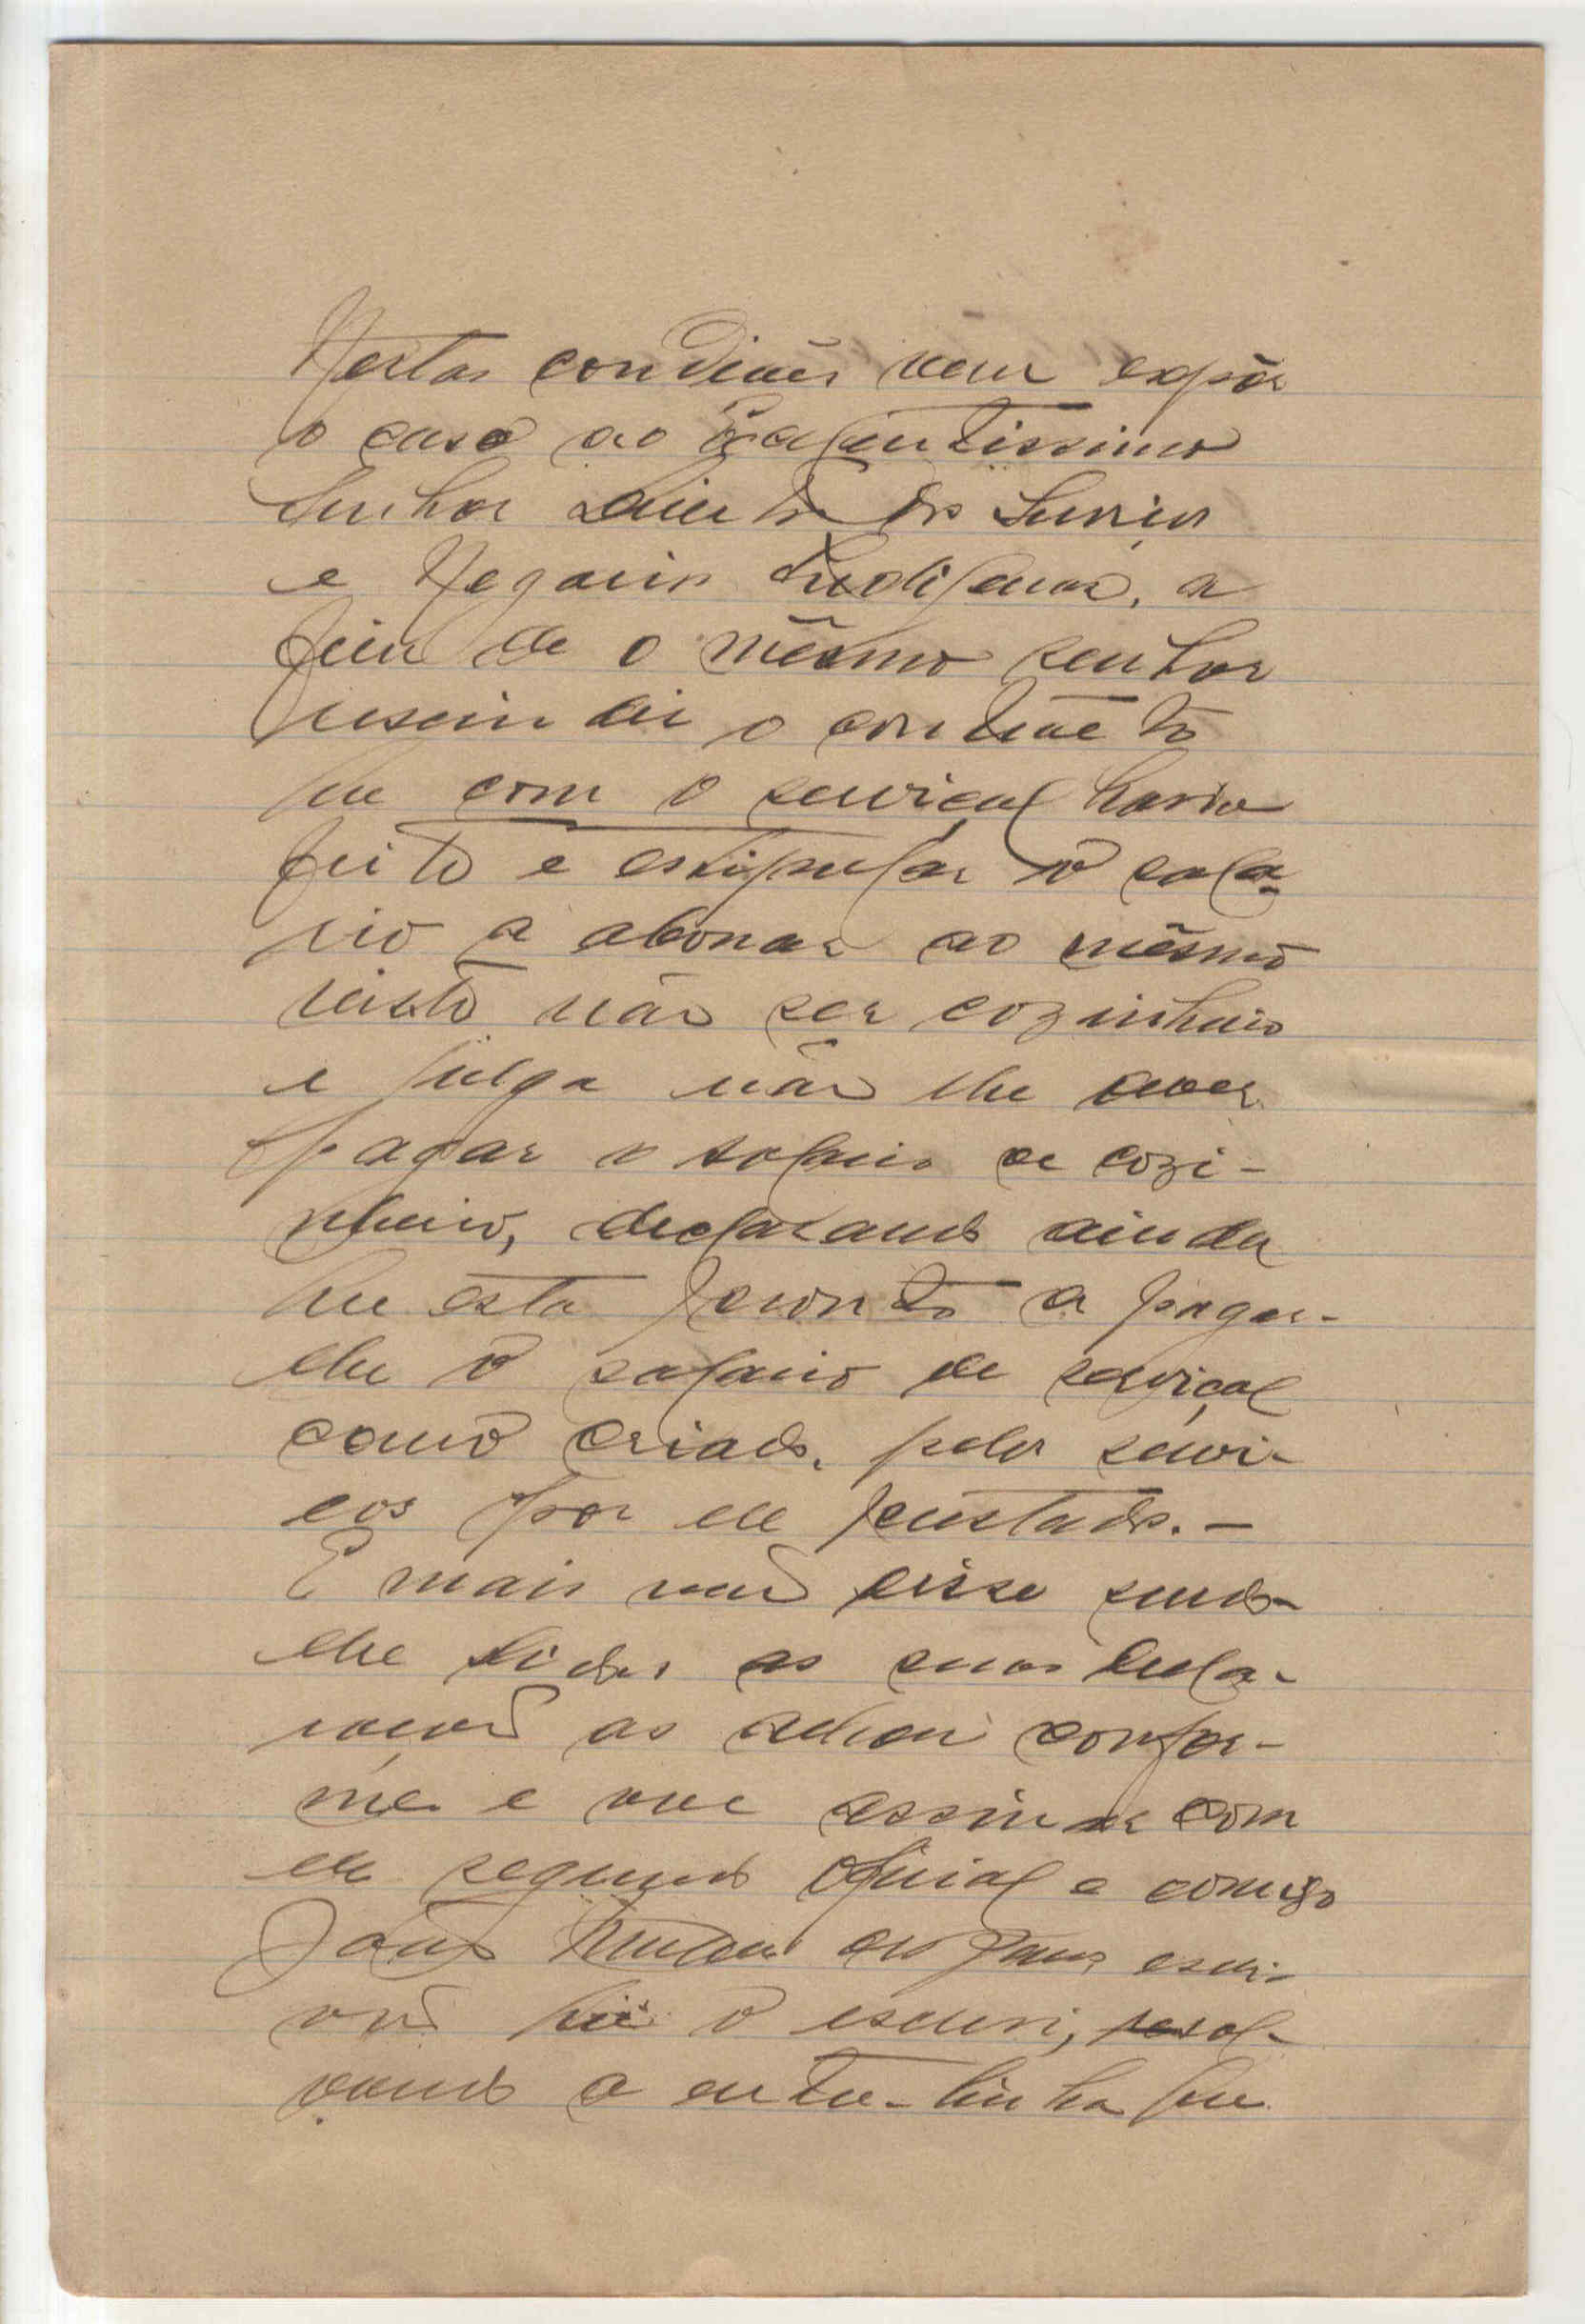 Nestas condições vem expôr
o caso ao Excelentissimo
Senhor Director dos Serviços
e Negocios Indigenas, a
fim de o mêsmo senhor
rescindir o contracto
que com o serviçal havia
feito e estipular o sala-
rio a abonar ao mêsmo
visto não ser cozinheiro
e julga não lhe dever
pagar o salario de cozi-
nheiro, declarando ainda
que esta pronto a pagar-
lhe o salario de serviçal
como criado, pelos servi-
cos por ele prestados.—
E mais não disse sendo-
lhe lidas as suas decla-
rações as achou confor-
me e vae assinar com
ele segundo oficial e comigo
João escri-
vão que o escrevi, resal-
vando a entre-linha que